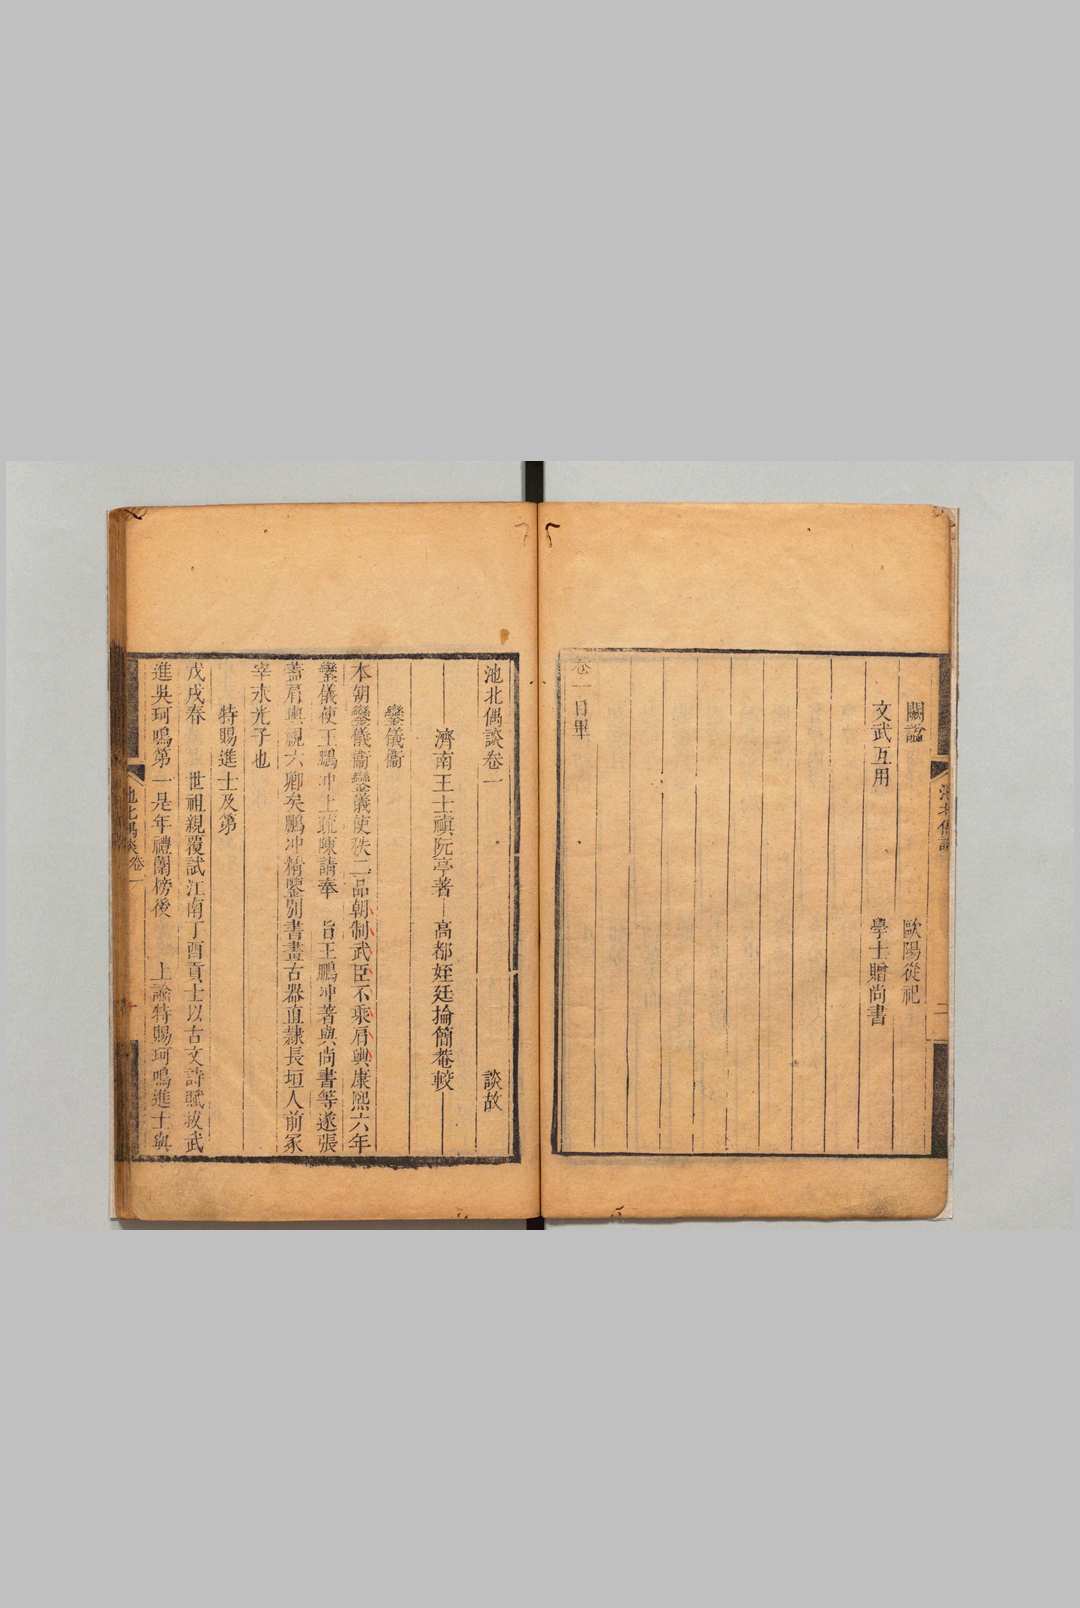 闕譌 歐陽從祀
文武互用 學士贈尚書
卷一目畢
池北偶談
二
池北偶談卷一 談故
濟南王士禛阮亭著 高都姪廷掄簡菴較
鑾儀衞
本朝鑾儀衞鑾儀使秩二品朝制武臣不乘肩輿康熙六年
鑾儀使王鵬冲上疏陳請奉 旨王鵬冲著與尚書等遂張
蓋肩輿視六卿矣鵬冲精鑒別書畫古器直隷長垣人前冢
宰永光子也
特賜進士及第
戊戌春 世祖親覆試江南丁酉貢士以古文詩賦拔武
進吳珂鳴第一是年禮闈榜後 上諭特賜珂鳴進士與
池北偶談卷一
一